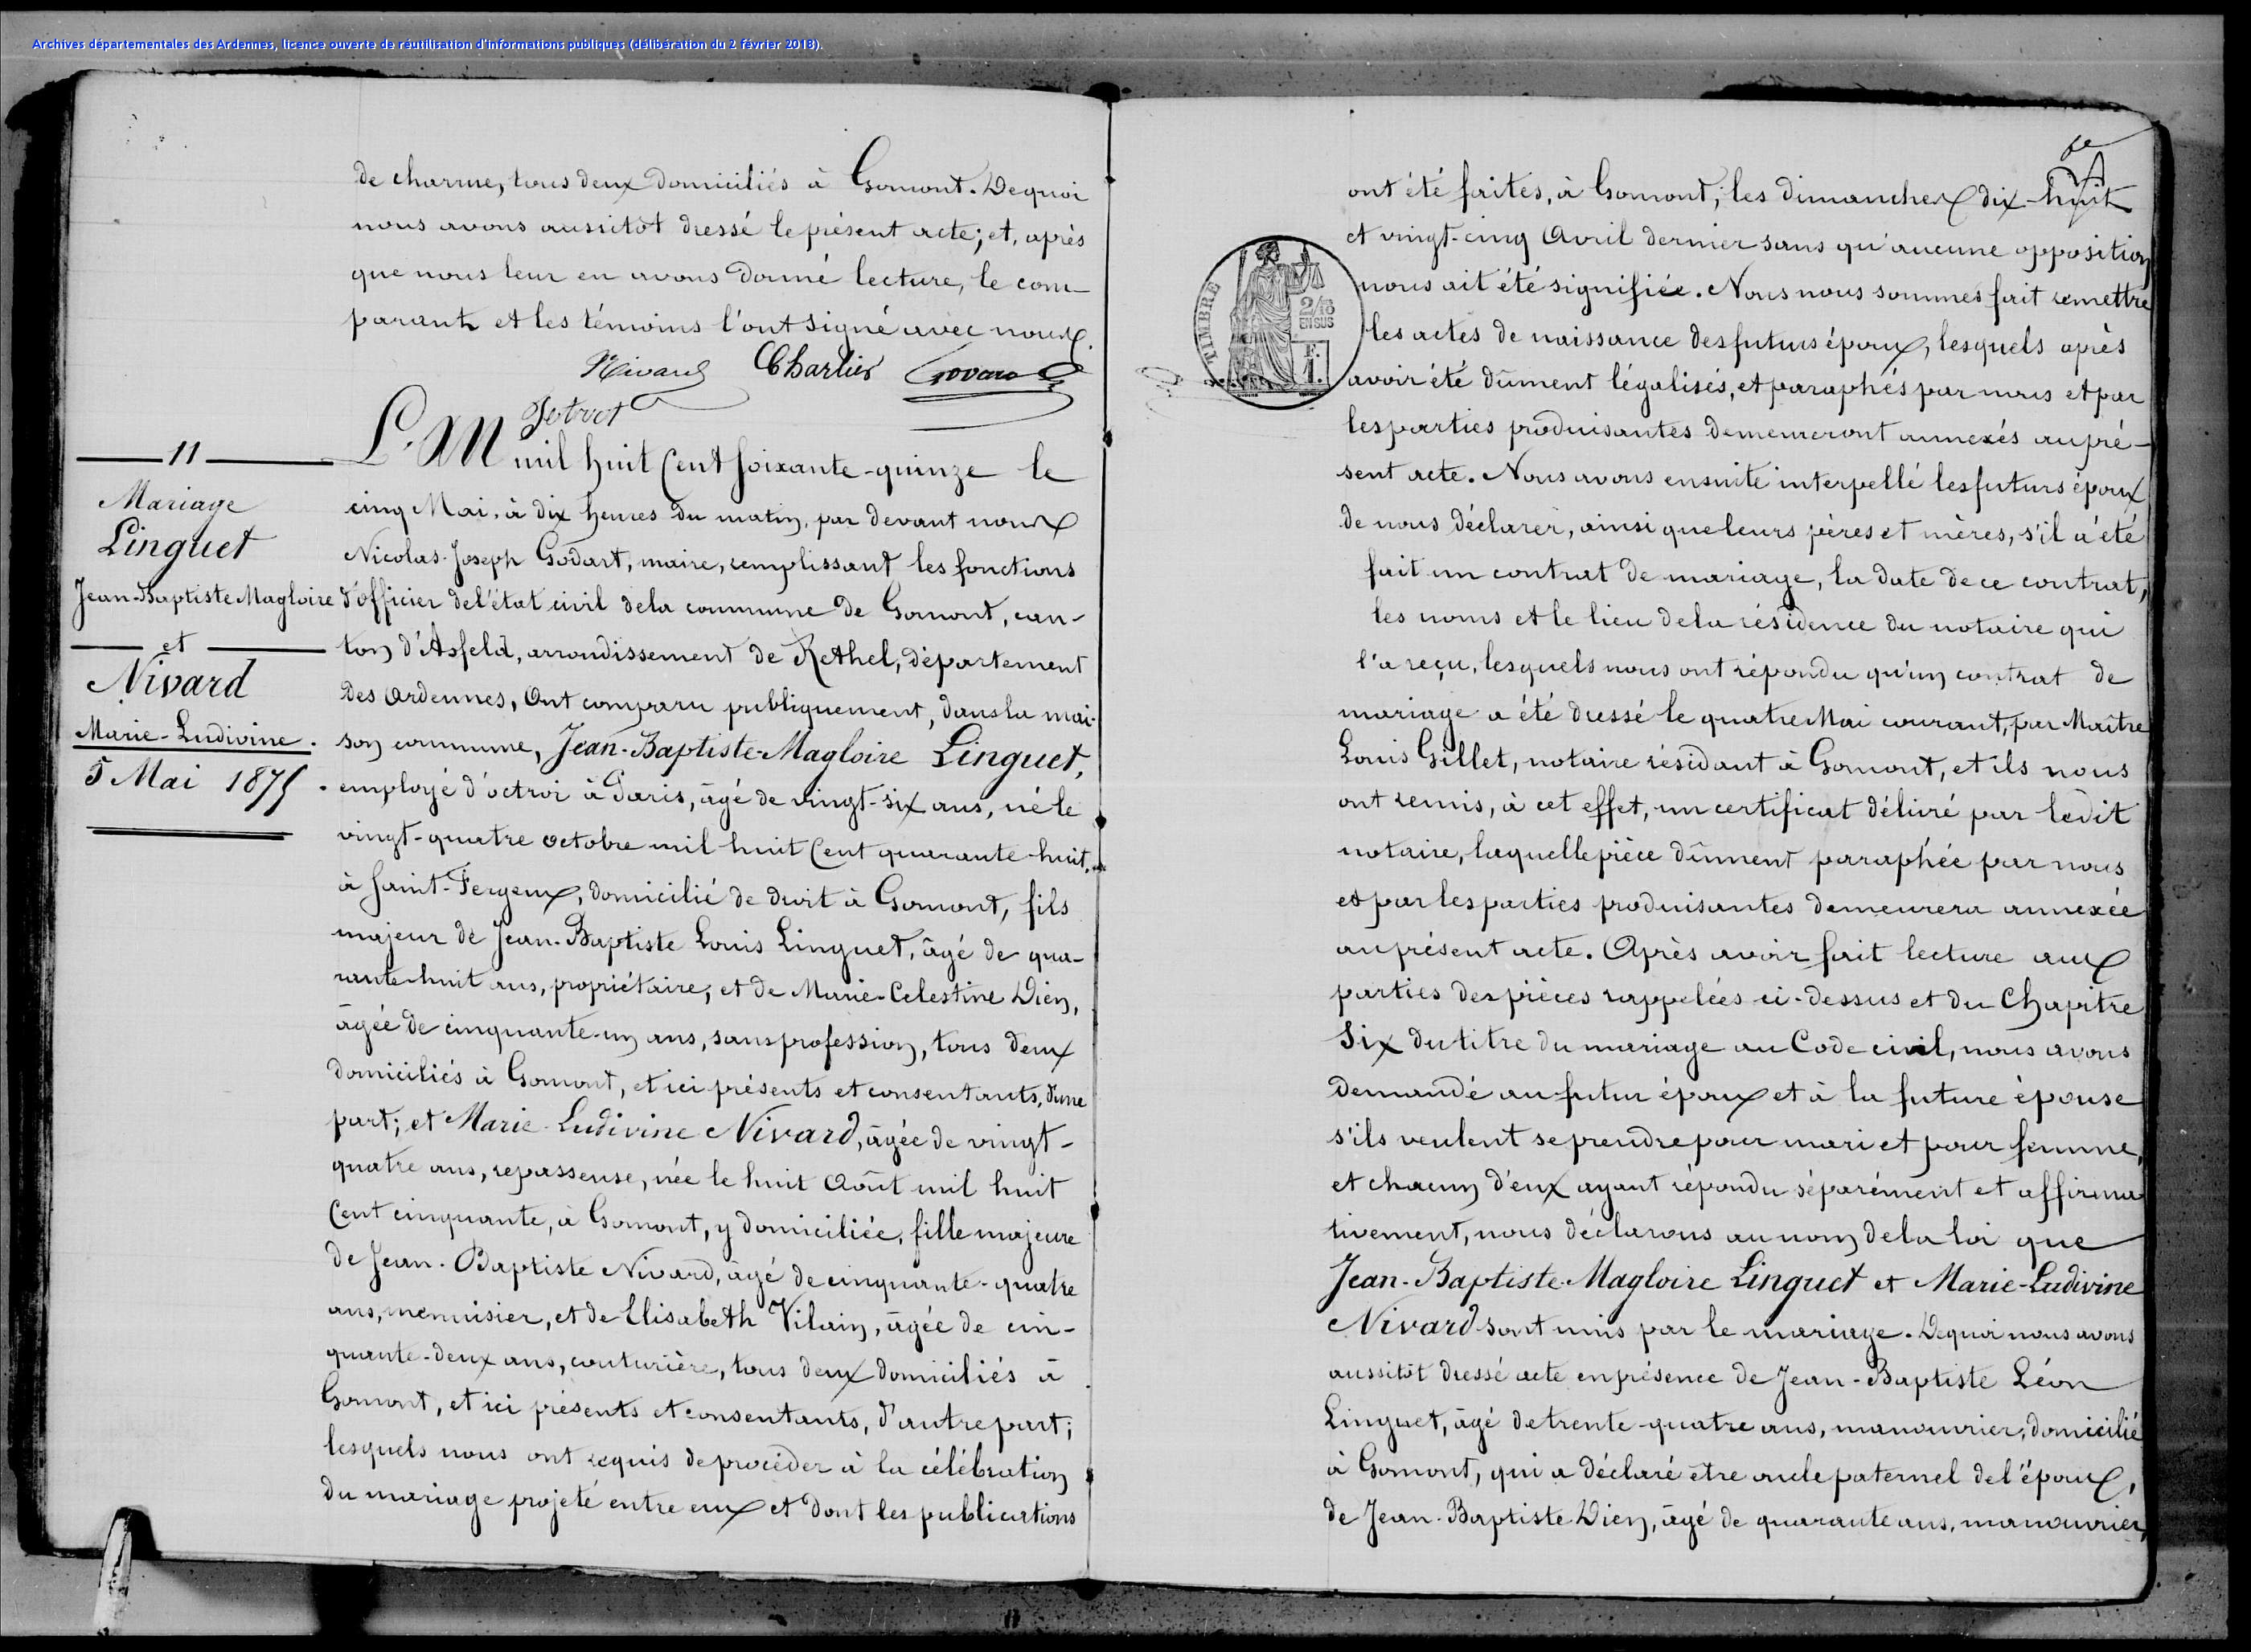 Archives départementales des Ardennes, licence ouverte de réutilisation d'informations publiques (délibération du 2 février 2018).
de charme, tous deux domiciliés à Gomont. De quoi
nous avons aussitôt dressé le présent acte; et, après
que nous leur en avons donné lecture, le com-
parant et les témoins l'ont signé avec nous.
Nivard Charlier Godart
L'. M mil huit Cent soixante-quinze le
11
Mariage
Linguet
Jean-Baptiste Magloire
et
Nivard
Marie-Ludivine.
5 Mai 1875.
cinq Mai, à dix heures du matin, par devant nous
Nicolas-Joseph Godart, maire, remplissant les fonctions
d'officier de l'état civil de la commune de Gomont, can-
ton d'Asfeld, arrondissement de Rethel, département
des Ardennes, Ont comparu publiquement, dans la mai-
son commune, Jean-Baptiste-Magloire Linguet,
employé d'octroi à Paris, âgé de vingt-six ans, né le
vingt-quatre octobre mil huit Cent quarante-huit,
à Saint-Fergeux, domicilié de droit à Gomont, fils
majeur de Jean-Baptiste Louis Linguet, âgé de qua-
rante-huit ans, propriétaire, et de Marie-Celestine Dien,
âgée de cinquante-un ans, sans profession, tous deux
domiciliés à Gomont, et ici présents et consentants, d'une
part; et Marie-Ludivine Nivard, âgée de vingt-
quatre ans, repasseuse, née le huit Août mil huit
Cent cinquante, à Gomont, y domiciliée, fille majeure
de Jean-Baptiste Nivard, âgé de cinquante-quatre
ans, menuisier, et de Elisabeth Vilain, âgée de cin-
quante-deux ans, couturière, tous deux domiciliés à
Gomont, et ici présents et consentants, d'autre part;
lesquels nous ont requis de procéder à la célébration
du mariage projeté entre eux et dont les publications
ont été faites, à Gomont, les dimanches dix-huit
et vingt-cinq Avril dernier sans qu'aucune opposition
nous ait été signifiée. Nous nous sommes fait remettre
les actes de naissance des futurs époux, lesquels après
avoir été dûment légalisés, et paraphés par nous et par
les parties produisantes demeureront annexés au pré-
sent acte. Nous avons ensuite interpellé les futurs époux
de nous déclarer, ainsi que leurs pères et mères, s'il a été
fait un contrat de mariage, la date de ce contrat,
les noms et le lieu de la résidence du notaire qui
l'a reçu, lesquels nous ont répondu qu'un contrat de
mariage a été dressé le quatre Mai courant, par Maître
Louis Gillet, notaire résidant à Gomont, et ils nous
ont remis, à cet effet, un certificat délivré par ledit
notaire, laquelle pièce dûment paraphée par nous
et par les parties produisantes demeurera annexée
au présent acte. Après avoir fait lecture aux
parties des pièces rappelées ci-dessus et du Chapitre
Six du titre du mariage au Code civil, nous avons
demandé au futur époux et à la future épouse
s'ils veulent se prendre pour mari et pour femme,
et chacun d'eux ayant répondu séparément et affirma
tivement, nous déclarons au nom de la loi que
Jean-Baptiste-Magloire Linguet et Marie-Ludivine
Nivard sont unis par le mariage. De quoi nous avons
aussitôt dressé acte en présence de Jean-Baptiste Léon
Linguet, âgé de trente-quatre ans, manouvrier, domicilié
à Gomont, qui a déclaré être oncle paternel de l'époux,
de Jean-Baptiste Dien, âgé de quarante ans, manouvrier,
TIMBRE
2/10
EN SUS
F.
1.